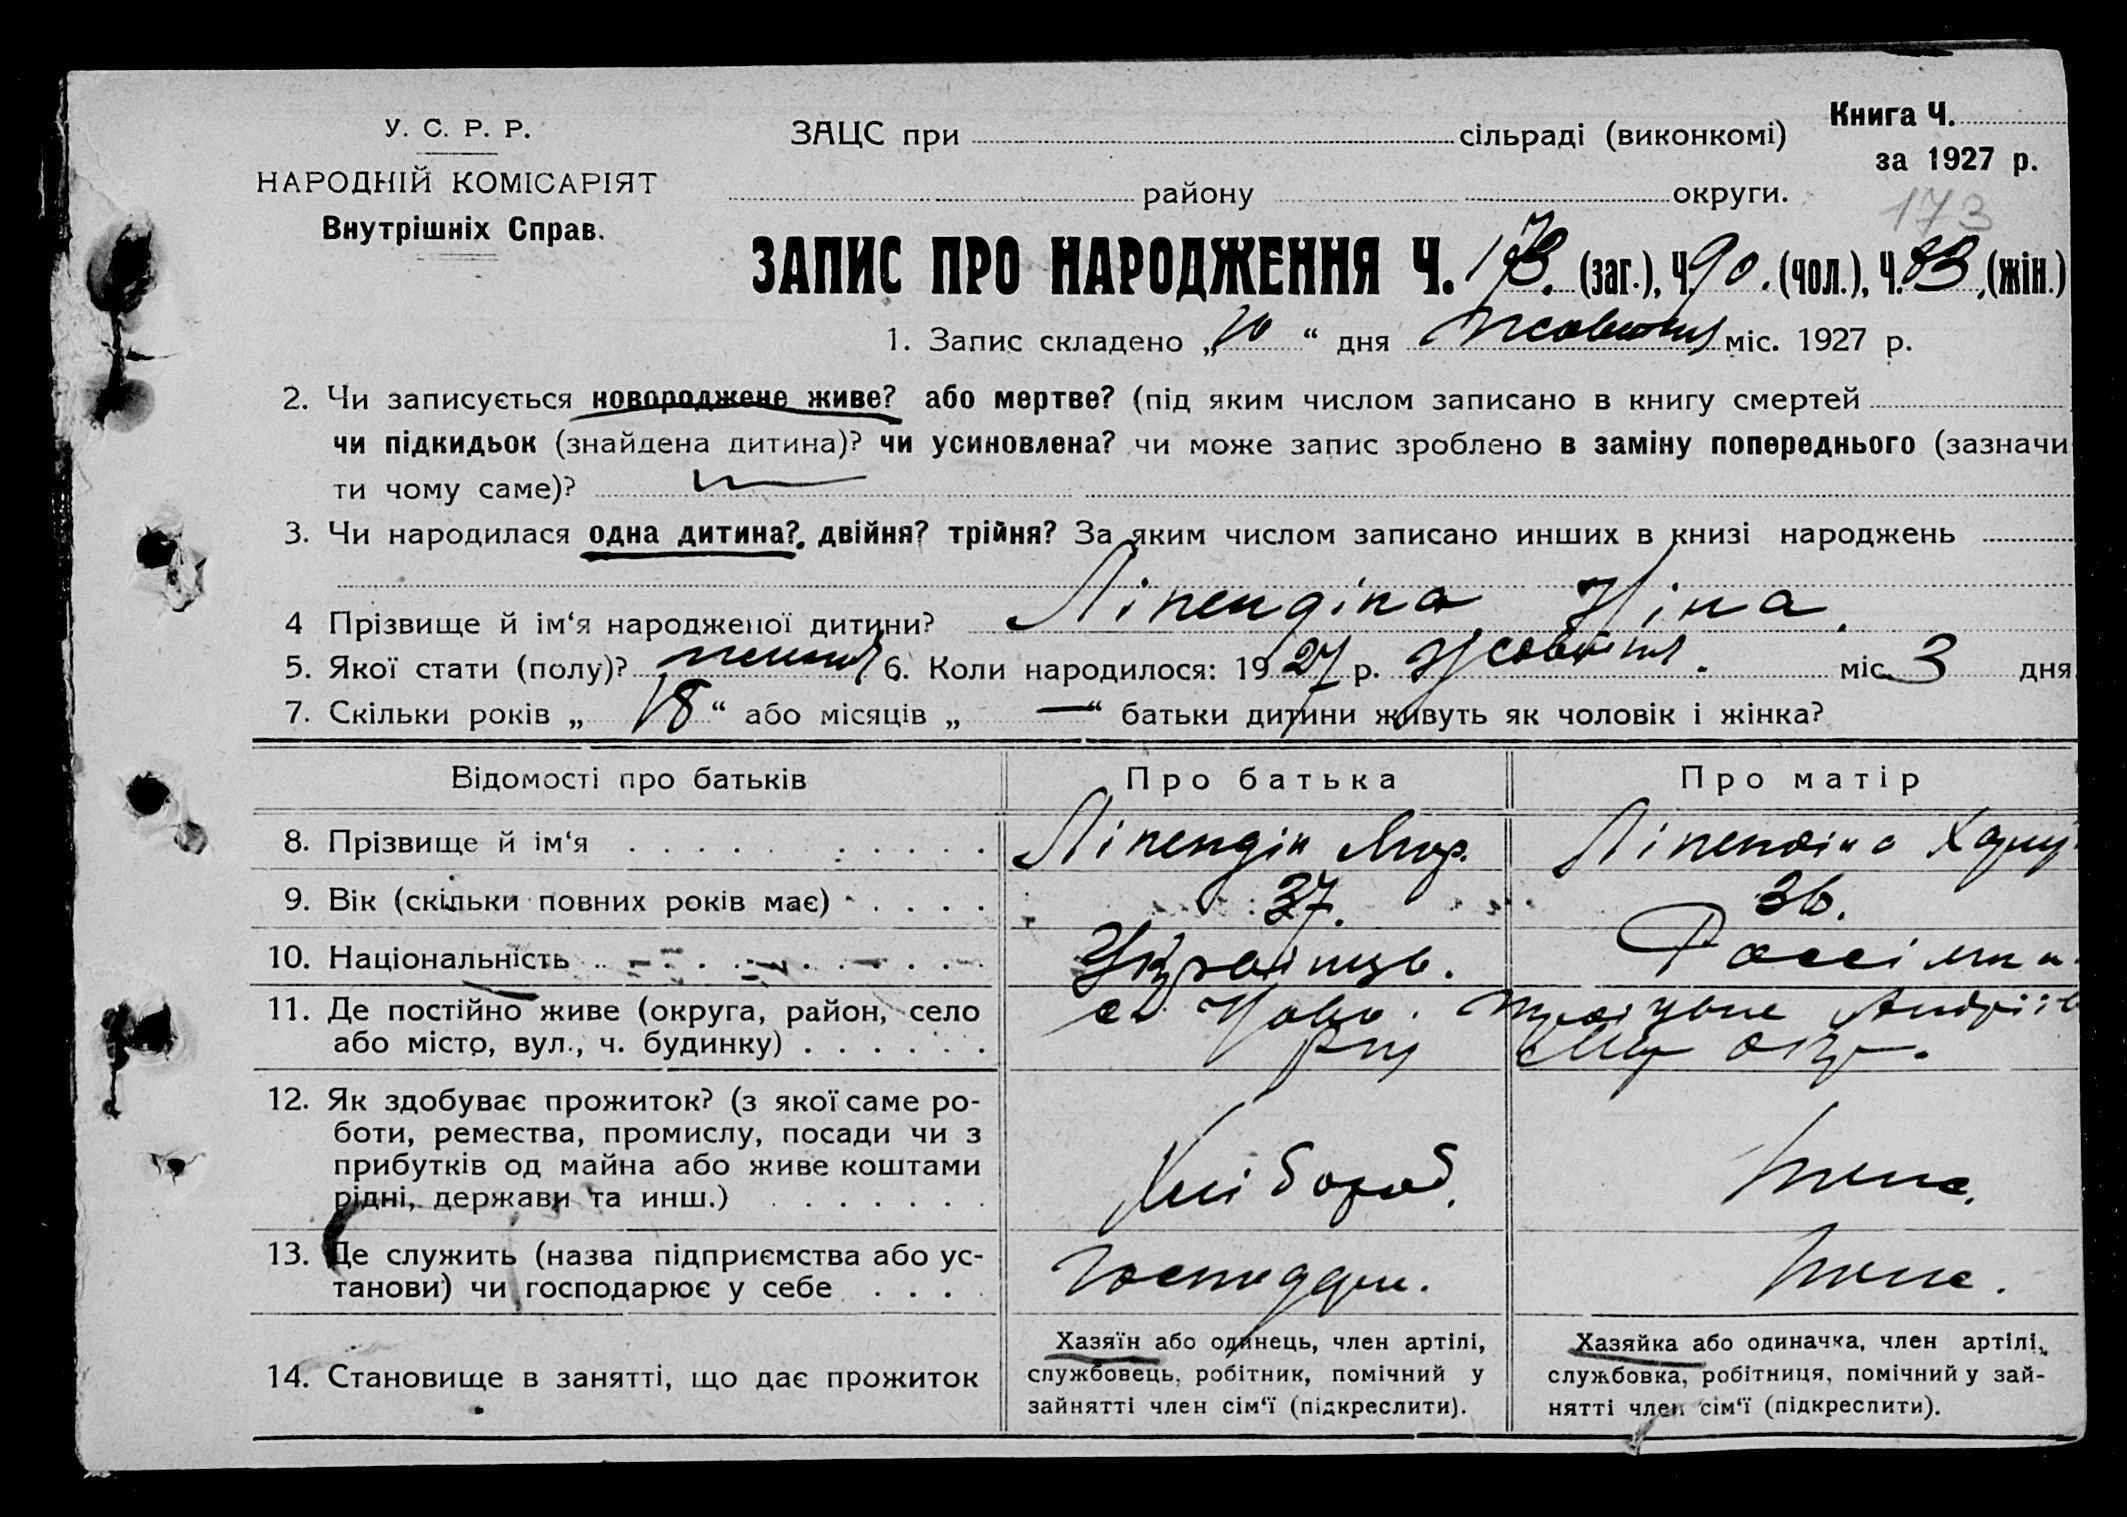 У. С. Р. Р.
НАРОДНІЙ КОМІСАРІЯТ
Внутрішніх Справ.
ЗАЦС при сільраді (виконкомі)
району округи.
Книга Ч.
за 1927 р.
173
ЗАПИС ПРО НАРОДЖЕННЯ Ч. 173. (заг.), Ч. 90. (чол.), Ч. 83, (жін.)
1. Запис складено „10“ дня Жовтня міс. 1927 р.
2. Чи записується новороджене живе? або мертве? (під яким числом записано в книгу смертей
чи підкидьок (знайдена дитина)? чи усиновлена? чи може запис зроблено в заміну попереднього (зазначи
ти чому саме)?
3. Чи народилася одна дитина? двійня? трійня? За яким числом записано инших в книзі народжень
4 Прізвище й ім‘я народженої дитини? Ліпендіна Ніна.
5. Якої стати (полу)? жіноч 6. Коли народилося: 1927 р. Жовтня. міс. 3 дня
7. Скільки років „ 18 “ або місяців „ — “ батьки дитини живуть як чоловік і жінка?
Відомості про батьків Про батька Про матір
8. Прізвище й ім‘я Ліпендін Ліпендіна
9. Вік (скільки повних років має) 37. 36.
10. Національність Українць. Россіянка
11. Де постійно живе (округа, район, село
або місто, вул., ч. будинку)
с. Ново. Троіцьке Андріїв
Рну окр.
12. Як здобуває прожиток? (з якої саме ро-
боти, ремества, промислу, посади чи з
прибутків од майна або живе коштами
рідні, держави та инш.)
Хлібороб. Тоже.
13. Де служить (назва підприємства або ус-
танови) чи господарює у себе
Господарю. Тоже.
14. Становище в занятті, що дає прожиток
Хазяїн або одинець, член артілі,
службовець, робітник, помічний у
зайнятті член сім‘ї (підкреслити).
Хазяйка або одиначка, член артілі,
службовка, робітниця, помічний у зай-
нятті член сім‘ї (підкреслити).